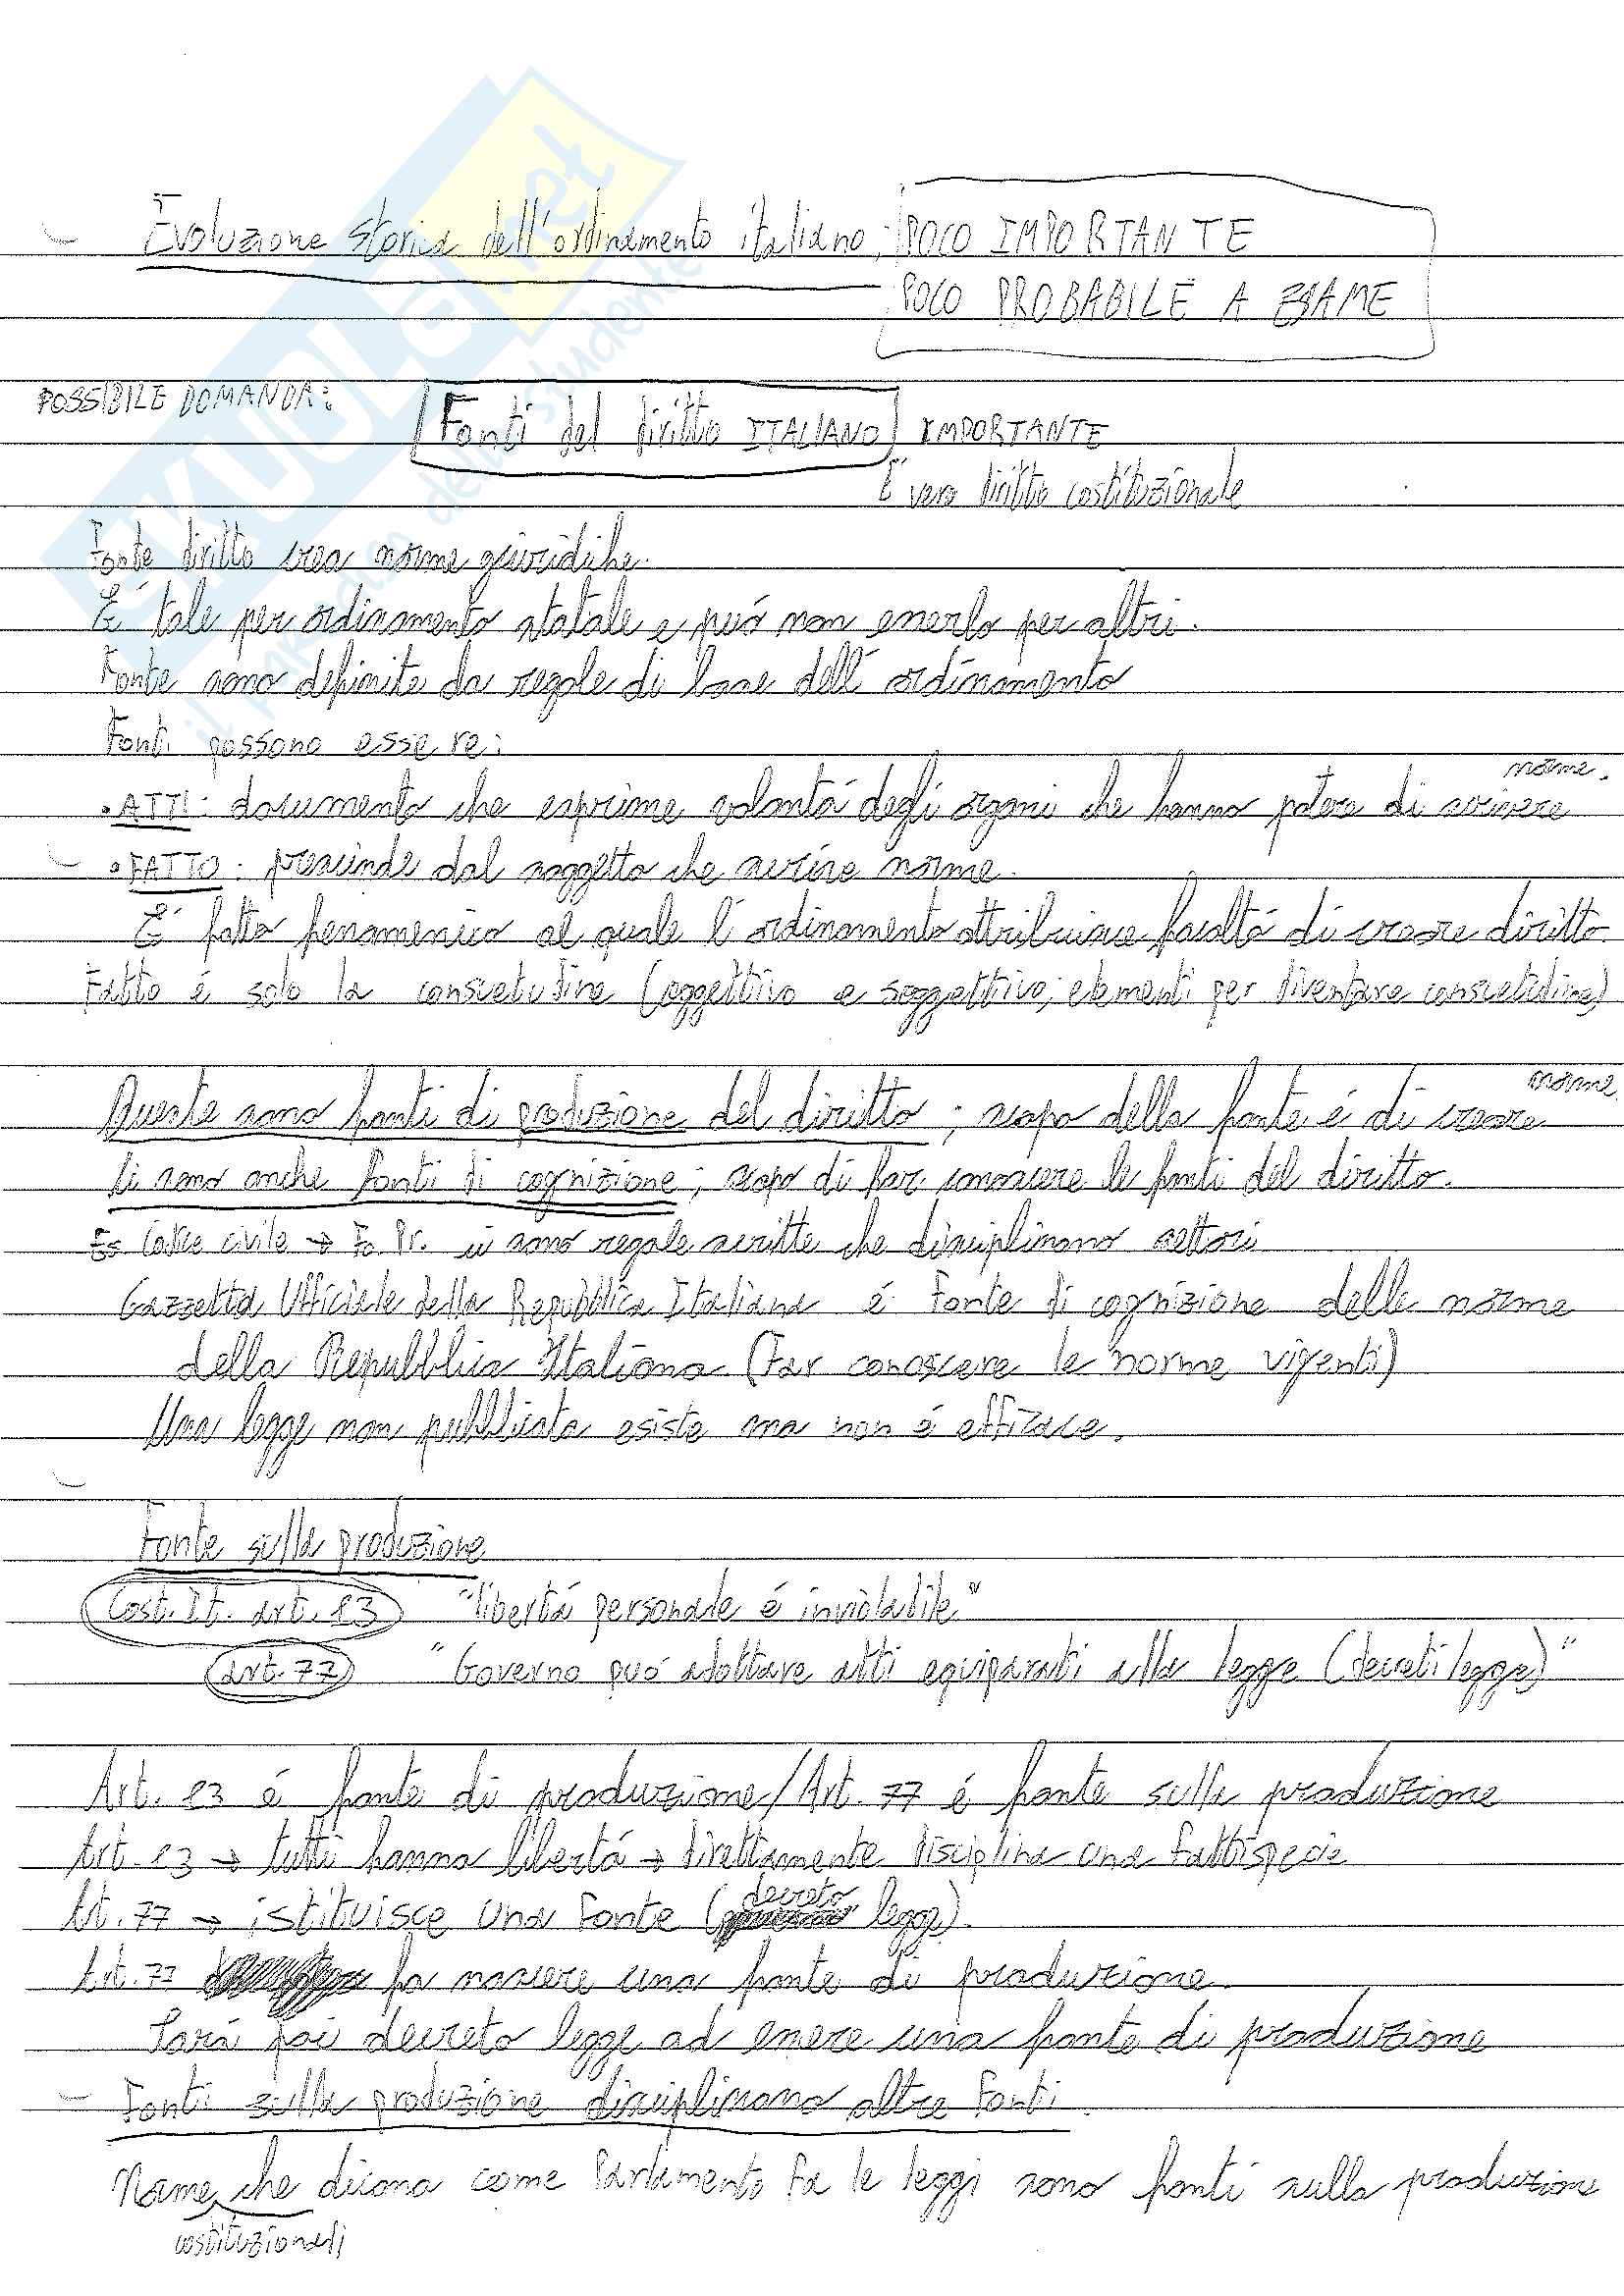 Evoluzione storica dell'ordinamento italiano; POCO IMPORTANTE
POCO PROBABILE A ESAME
POSSIBILE DOMANDA:
Fonti del diritto ITALIANO IMPORTANTE
É vero diritto costituzionale
Fonte diritto crea norme giuridiche.
É tale per ordinamento statale e puó non esserlo per altri.
Fonte sono definite da regole di base dell'ordinamento
Fonti possono essere:
• ATTI: documento che esprime volontá degli organi che hanno potere di scrivere norme.
• FATTO: prescinde dal soggetto che scrive norme.
É fatto fenomenico al quale l'ordinamento attribuisce facoltá di creare diritto.
Fatto é solo la consuetudine (oggettivo e soggettivo; elementi per diventare consuetudine)
Queste sono fonti di produzione del diritto; scopo della fonte é di creare norme.
Ci sono anche fonti di cognizione; scopo di far conoscere le fonti del diritto.
Es Codice civile → Fo. Pr. ci sono regole scritte che disciplinano settori
Gazzetta Ufficiale della Repubblica Italiana é fonte di cognizione delle norme
della Repubblica Italiana (far conoscere le norme vigenti)
Una legge non pubblicata esiste ma non é efficace.
Fonte sulla produzione
Cost. It. art. 13 "libertá personale é inviolabile"
art. 77 "Governo puó adottare atti equiparati alla legge (decreti legge)"
Art. 13 é fonte di produzione/Art. 77 é fonte sulla produzione
Art. 13 → tutti hanno libertá → direttamente disciplina una fattispecie
Art. 77 → istituisce una fonte (decreto legge).
Art. 77 fa nascere una fonte di produzione.
Sará poi decreto legge ad essere una fonte di produzione
Fonti sulla produzione disciplinano altre fonti.
Norme che dicono come Parlamento fa le leggi sono fonti sulla produzione
costituzionali
SKUOLA.net
il paradiso dello studente